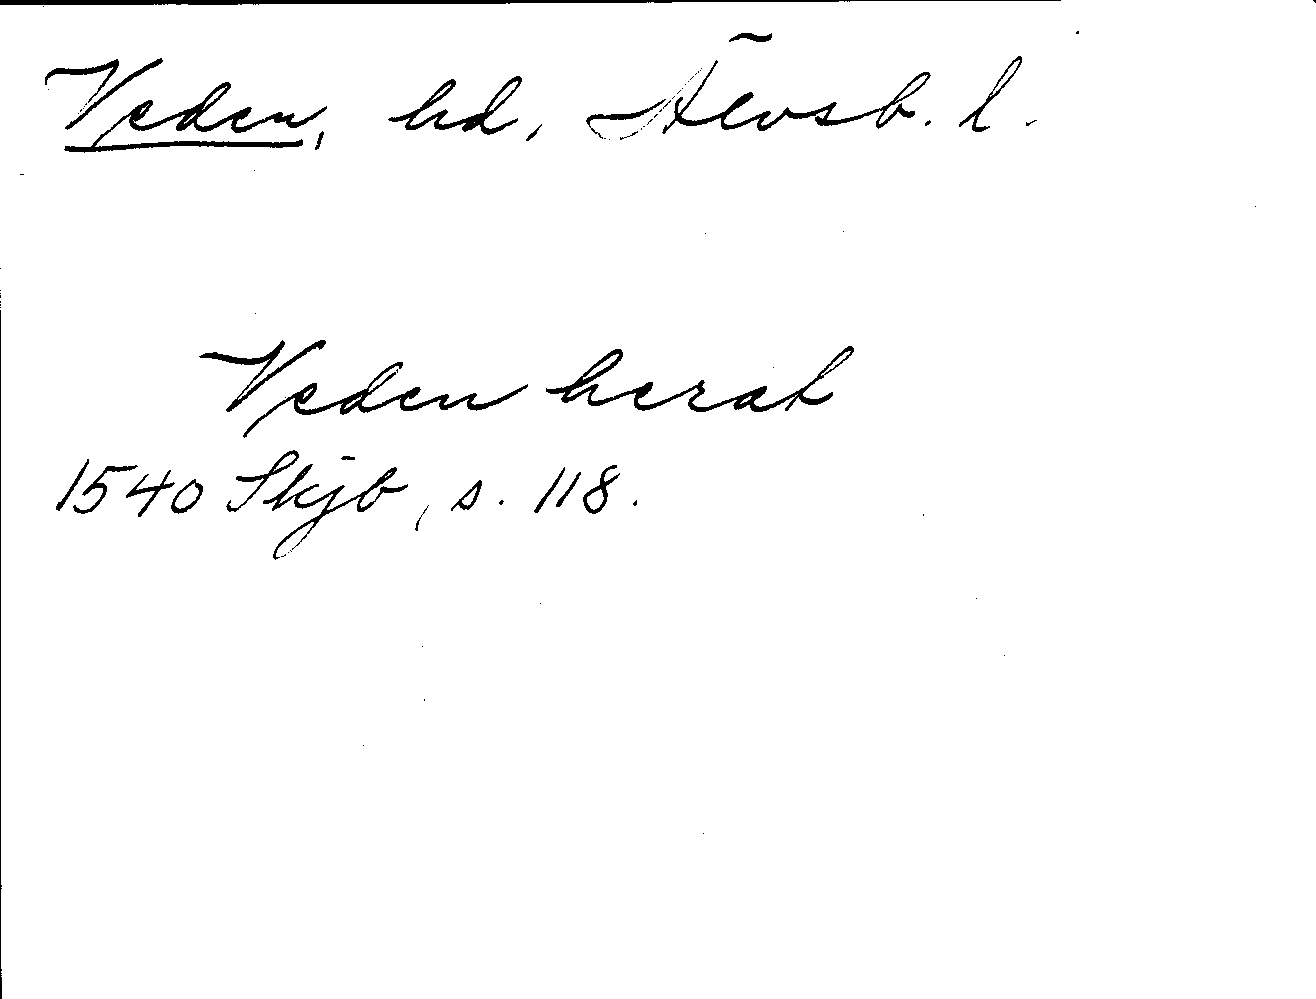 Veden, hd, Älvsb. l.
Veden herat
1540 Skjb, s. 118.